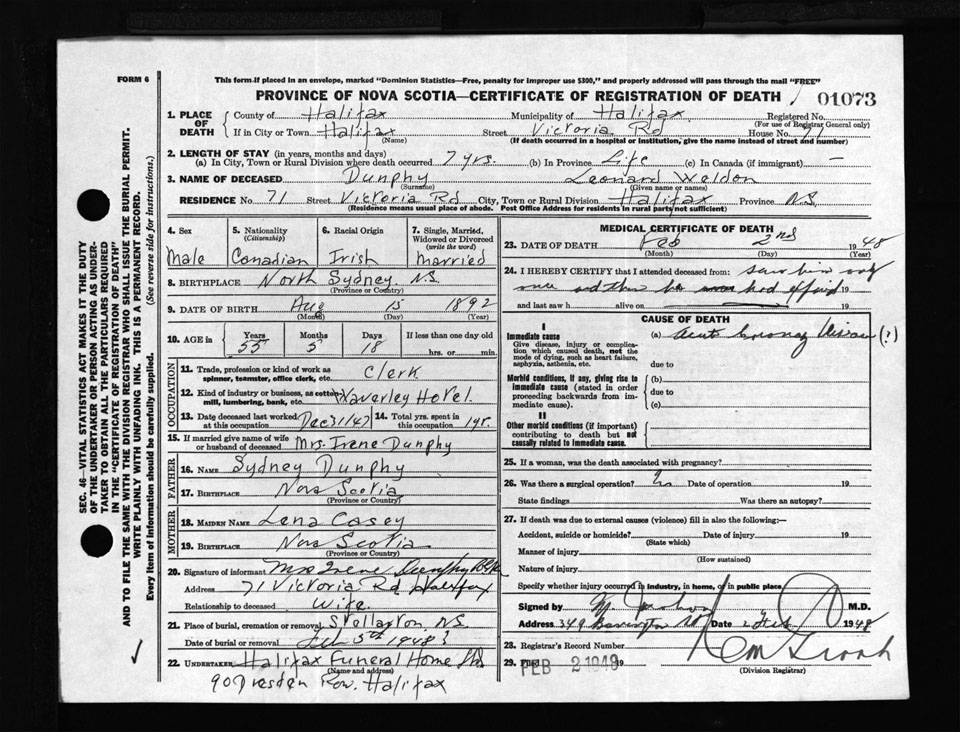 FORM 6
This form if placed in an envelope, marked "Dominion Statistics—Free, penalty for improper use $300," and properly addressed will pass through the mail "FREE"
PROVINCE OF NOVA SCOTIA—CERTIFICATE OF REGISTRATION OF DEATH
01073
1. PLACE OF DEATH
County of Halifax Municipality of Halifax Registered No.
(For use of Registrar General only)
If in City or Town Halifax Street Victoria Rd House No. 71
(Name) (If death occurred in a hospital or institution, give the name instead of street and number)
2. LENGTH OF STAY (in years, months and days)
(a) In City, Town or Rural Division where death occurred 7 yrs. (b) In Province Life (c) In Canada (if immigrant) —
3. NAME OF DECEASED Dunphy Leonard Weldon
(Surname) (Given name or names)
RESIDENCE No. 71 Street Victoria Rd City, Town or Rural Division Halifax Province N.S.
(Residence means usual place of abode. Post Office Address for residents in rural parts not sufficient)
4. Sex 5. Nationality (Citizenship) 6. Racial Origin 7. Single, Married, Widowed or Divorced (write the word)
Male Canadian Irish Married
8. BIRTHPLACE North Sydney N.S.
(Province or Country)
9. DATE OF BIRTH Aug 15 1892
(Month) (Day) (Year)
10. AGE in Years Months Days If less than one day old
55 5 18 hrs. or min.
OCCUPATION
11. Trade, profession or kind of work as spinner, teamster, office clerk, etc. Clerk
12. Kind of industry or business, as cotton mill, lumbering, bank, etc. Waverley Hotel
13. Date deceased last worked at this occupation Dec 31/47 14. Total yrs. spent in this occupation 1 yr.
15. If married give name of wife or husband of deceased Mrs. Irene Dunphy
FATHER
16. NAME Sydney Dunphy
17. BIRTHPLACE Nova Scotia
(Province or Country)
MOTHER
18. MAIDEN NAME Lena Casey
19. BIRTHPLACE Nova Scotia
(Province or Country)
20. Signature of informant Mrs Irene Dunphy
Address 71 Victoria Rd Halifax
Relationship to deceased Wife
21. Place of burial, cremation or removal Stellarton, N.S.
Date of burial or removal Feb 5th 1948
22. UNDERTAKER Halifax Funeral Home Ltd
(Name and address)
90 Dresden Row. Halifax
MEDICAL CERTIFICATE OF DEATH
23. DATE OF DEATH Feb 2nd 1948
(Month) (Day) (Year)
24. I HEREBY CERTIFY that I attended deceased from: saw him only
once and then he had 19
and last saw h alive on 19
CAUSE OF DEATH
I
Immediate cause
Give disease, injury or complication which caused death, not the mode of dying, such as heart failure, asphyxia, asthenia, etc.
(a) Acute Coronary Disease (?)
due to
Morbid conditions, if any, giving rise to immediate cause (stated in order proceeding backwards from immediate cause).
(b)
due to
(c)
II
Other morbid conditions (if important) contributing to death but not causally related to immediate cause.
25. If a woman, was the death associated with pregnancy?
26. Was there a surgical operation? No Date of operation 19
State findings Was there an autopsy?
27. If death was due to external causes (violence) fill in also the following:—
Accident, suicide or homicide? Date of injury 19
(State which)
Manner of injury
(How sustained)
Nature of injury
Specify whether injury occurred in industry, in home, or in public place
Signed by M.D.
Address 349 Barrington St Date 2 Feb 1948
28. Registrar's Record Number
29. Filed FEB 2 1948 19
(Division Registrar)
SEC. 46—VITAL STATISTICS ACT MAKES IT THE DUTY
OF THE UNDERTAKER OR PERSON ACTING AS UNDERTAKER TO OBTAIN ALL THE PARTICULARS REQUIRED
IN THE "CERTIFICATE OF REGISTRATION OF DEATH"
AND TO FILE THE SAME WITH THE DIVISION REGISTRAR WHO SHALL ISSUE THE BURIAL PERMIT.
WRITE PLAINLY WITH UNFADING INK. THIS IS A PERMANENT RECORD.
Every item of information should be carefully supplied. (See reverse side for instructions.)